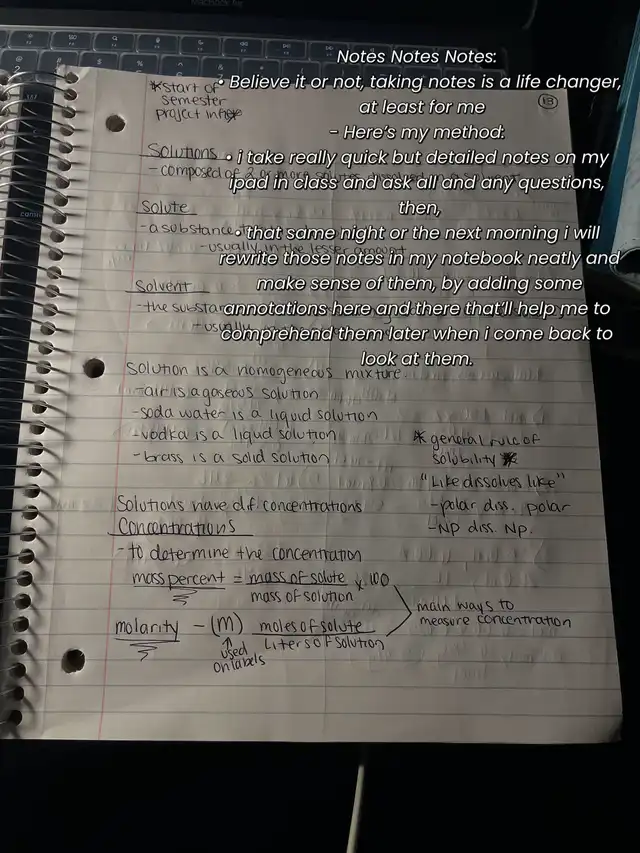 Notes Notes Notes:
• Believe it or not, taking notes is a life changer,
at least for me
- Here's my method:
• i take really quick but detailed notes on my
ipad in class and ask all and any questions,
then,
• that same night or the next morning i will
rewrite those notes in my notebook neatly and
make sense of them, by adding some
annotations here and there that'll help me to
comprehend them later when i come back to
look at them.
*start of
semester
project info*
13
Solutions
- composed of 2 or more
Solute
- a substance
- usually in the lesser amount
Solvent
- the substan
- usually
Solution is a homogeneous mixture.
- air is a gaseous solution
- soda water is a liquid solution
- vodka is a liquid solution
- brass is a solid solution
* general rule of
solubility *
"Like dissolves like"
- polar diss. polar
- NP diss. NP.
Solutions have dif. concentrations
Concentrations
- to determine the concentration
mass percent = mass of solute / mass of solution x 100
molarity - (M) moles of solute / Liters of solution
used
on labels
main ways to
measure concentration